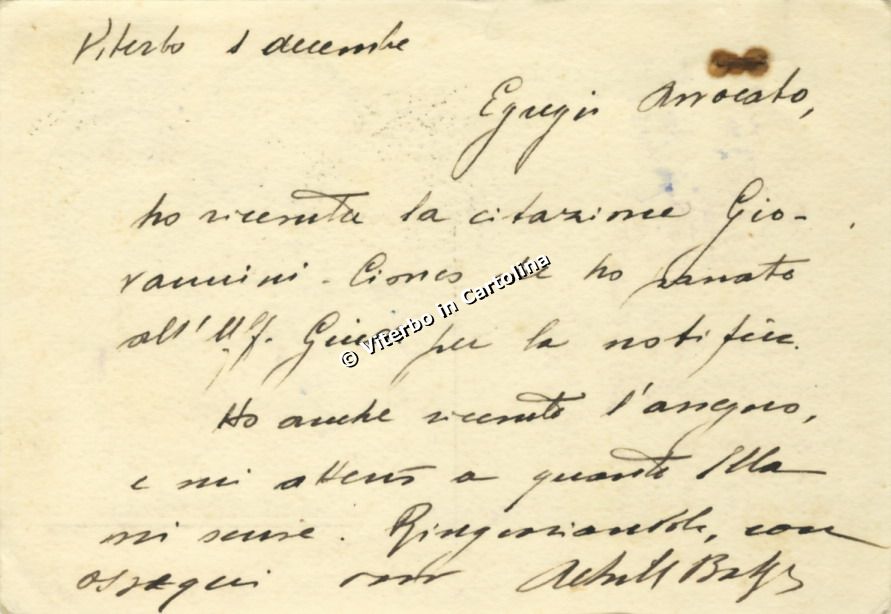 Viterbo 1 decembre
Egregio Avvocato,
ho ricevuta la citazione Gio-
vannini - che ho passato
all'Uff. Giud. per la notifica.
Ho anche ricevuto l'assegno,
e mi atterrò a quanto Ella
mi scrive. Ringraziandola, con
ossequi
© Viterbo in Cartolina